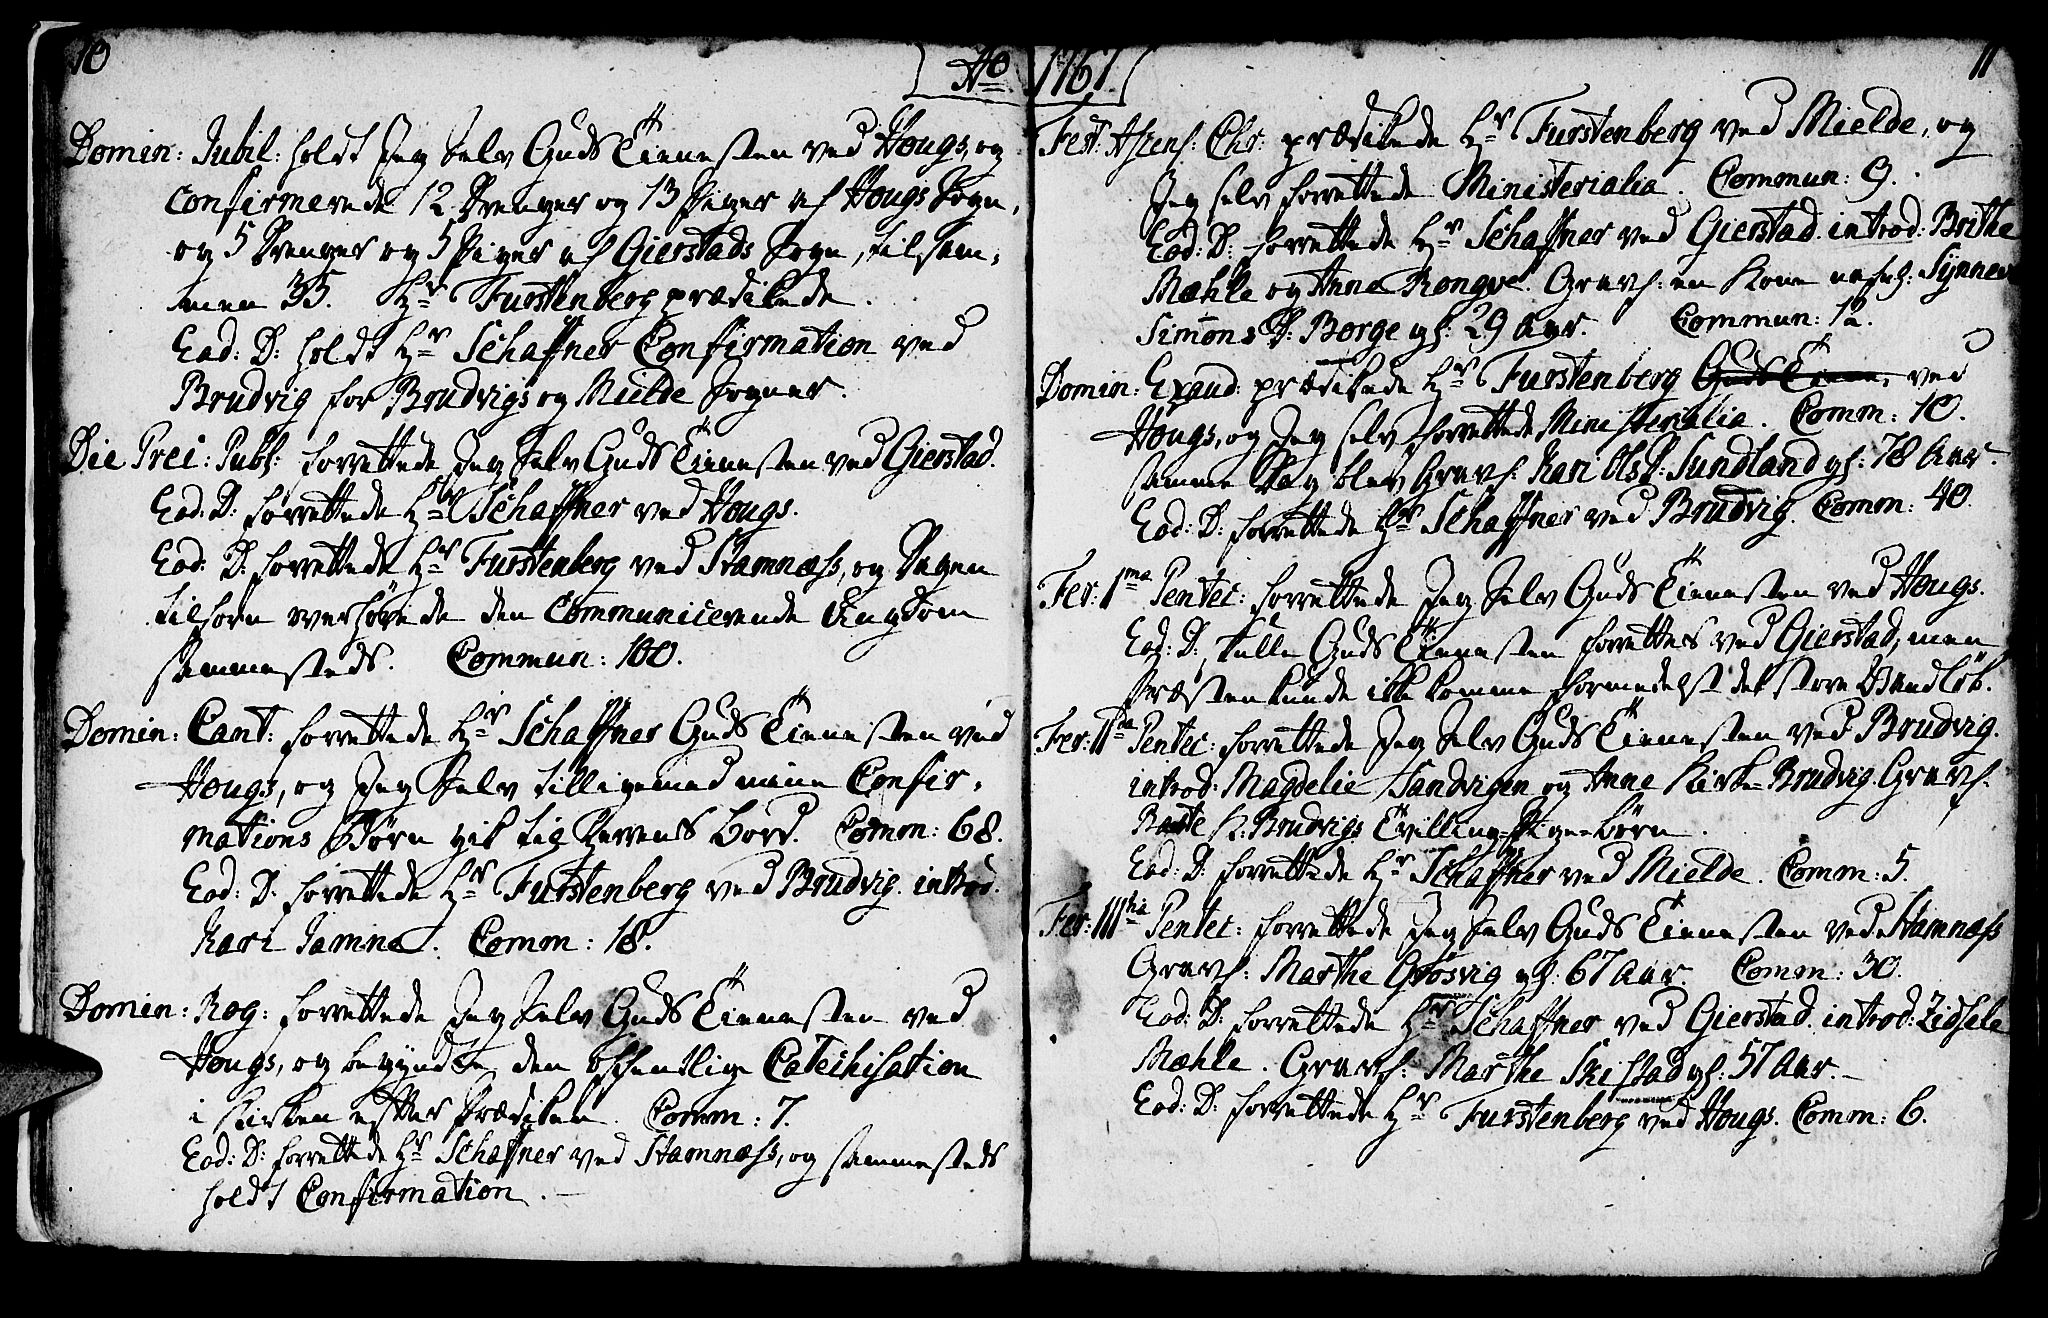 10
Ao 1767.
11
Domin: Jubil: holdt Jeg Selv Guds Tienesten ved Hougs, og
confirmerede 12 Drenger og 13 Piger af Hougs Sogn,
og 5 Drenger og 5 Piger af Gierstads Sogn, tilsam-
men 35. Hr Furstenberg prædikede.
Eod: D: holdt Hr Schaffner Confirmation ved
Brudvig for Brudvigs og Mielde Sogner.
Die Prec: Publ: forrettede Jeg Selv Guds Tienesten ved Gierstad.
Eod: D: forrettede Hr Schaffner ved Hougs.
Eod: D: forrettede Hr Furstenberg ved Stamnæss, og Dagen
tilforn overhørede den Communicerende Ungdom
sammesteds. Commun: 100.
Domin: Cant: forrettede Hr Schaffner Guds Tienesten ved
Hougs, og Jeg Selv tilligemed mine Confir-
mations Børn gik til Herrens bord. Comm: 68.
Eod: D: forrettede Hr Furstenberg ved Brudvig. introd:
Kari Jamne. Comm: 18.
Domin: Rog: forrettede Jeg Selv Guds Tienesten ved
Hougs, og begyndte den offentlige Catechisation
i Kirken efter Prædiken. Comm: 7.
Eod: D: forrettede Hr Schaffner ved Stamnæss, og sammesteds
holdt Confirmation.
Fest: Ascens: Chr: prædikede Hr Furstenberg ved Mielde, og
Jeg selv forrettede Ministerialia. Commun: 9.
Eod: D: forrettede Hr Schaffner ved Gierstad. introd: Brithe
Mæhle og Anne Rongve. Gravf: en Kone nafnl: Synneve
Simons D: Borge gl: 29 Aar. Commun: 12.
Domin: Exaud: prædikede Hr Furstenberg Guds Tiene, ved
Hougs, og Jeg selv forrettede Ministerialia. Comm: 10.
samme Dag blev Gravf: Kari Ols D: Sundland gl: 78 Aar.
Eod: D: forrettede Hr Schaffner ved Brudvig. Comm: 40.
Fer: 1ma Pentec: forrettede Jeg Selv Guds Tienesten ved Hougs.
Eod: D: skulle Guds Tienesten forrettes ved Gierstad, men
Præsten kunde ikke komme formedelst det store Vandløb.
Fer: IIda Pentec: forrettede Jeg Selv Guds Tienesten ved Brudvig.
introd: Magdelie Sandvigen og Anne Kirke-Brudvig. Gravf:
K: Brudvigs Tvilling-Pige-børn.
Eod: D: forrettede Hr Schaffner ved Mielde. Comm: 5.
Fer: IIItia Pentec: forrettede Jeg Selv Guds Tienesten ved Stamnæss
Gravf: Marthe Grøsvig gl: 67 Aar. Comm: 30.
Eod: D: forrettede Hr Schaffner ved Gierstad. introd: Zidsele
Mæhle. Gravf: Marthe Skistad gl: 57 Aar.
Eod: D: forrettede Hr Furstenberg ved Hougs. Comm: 6.